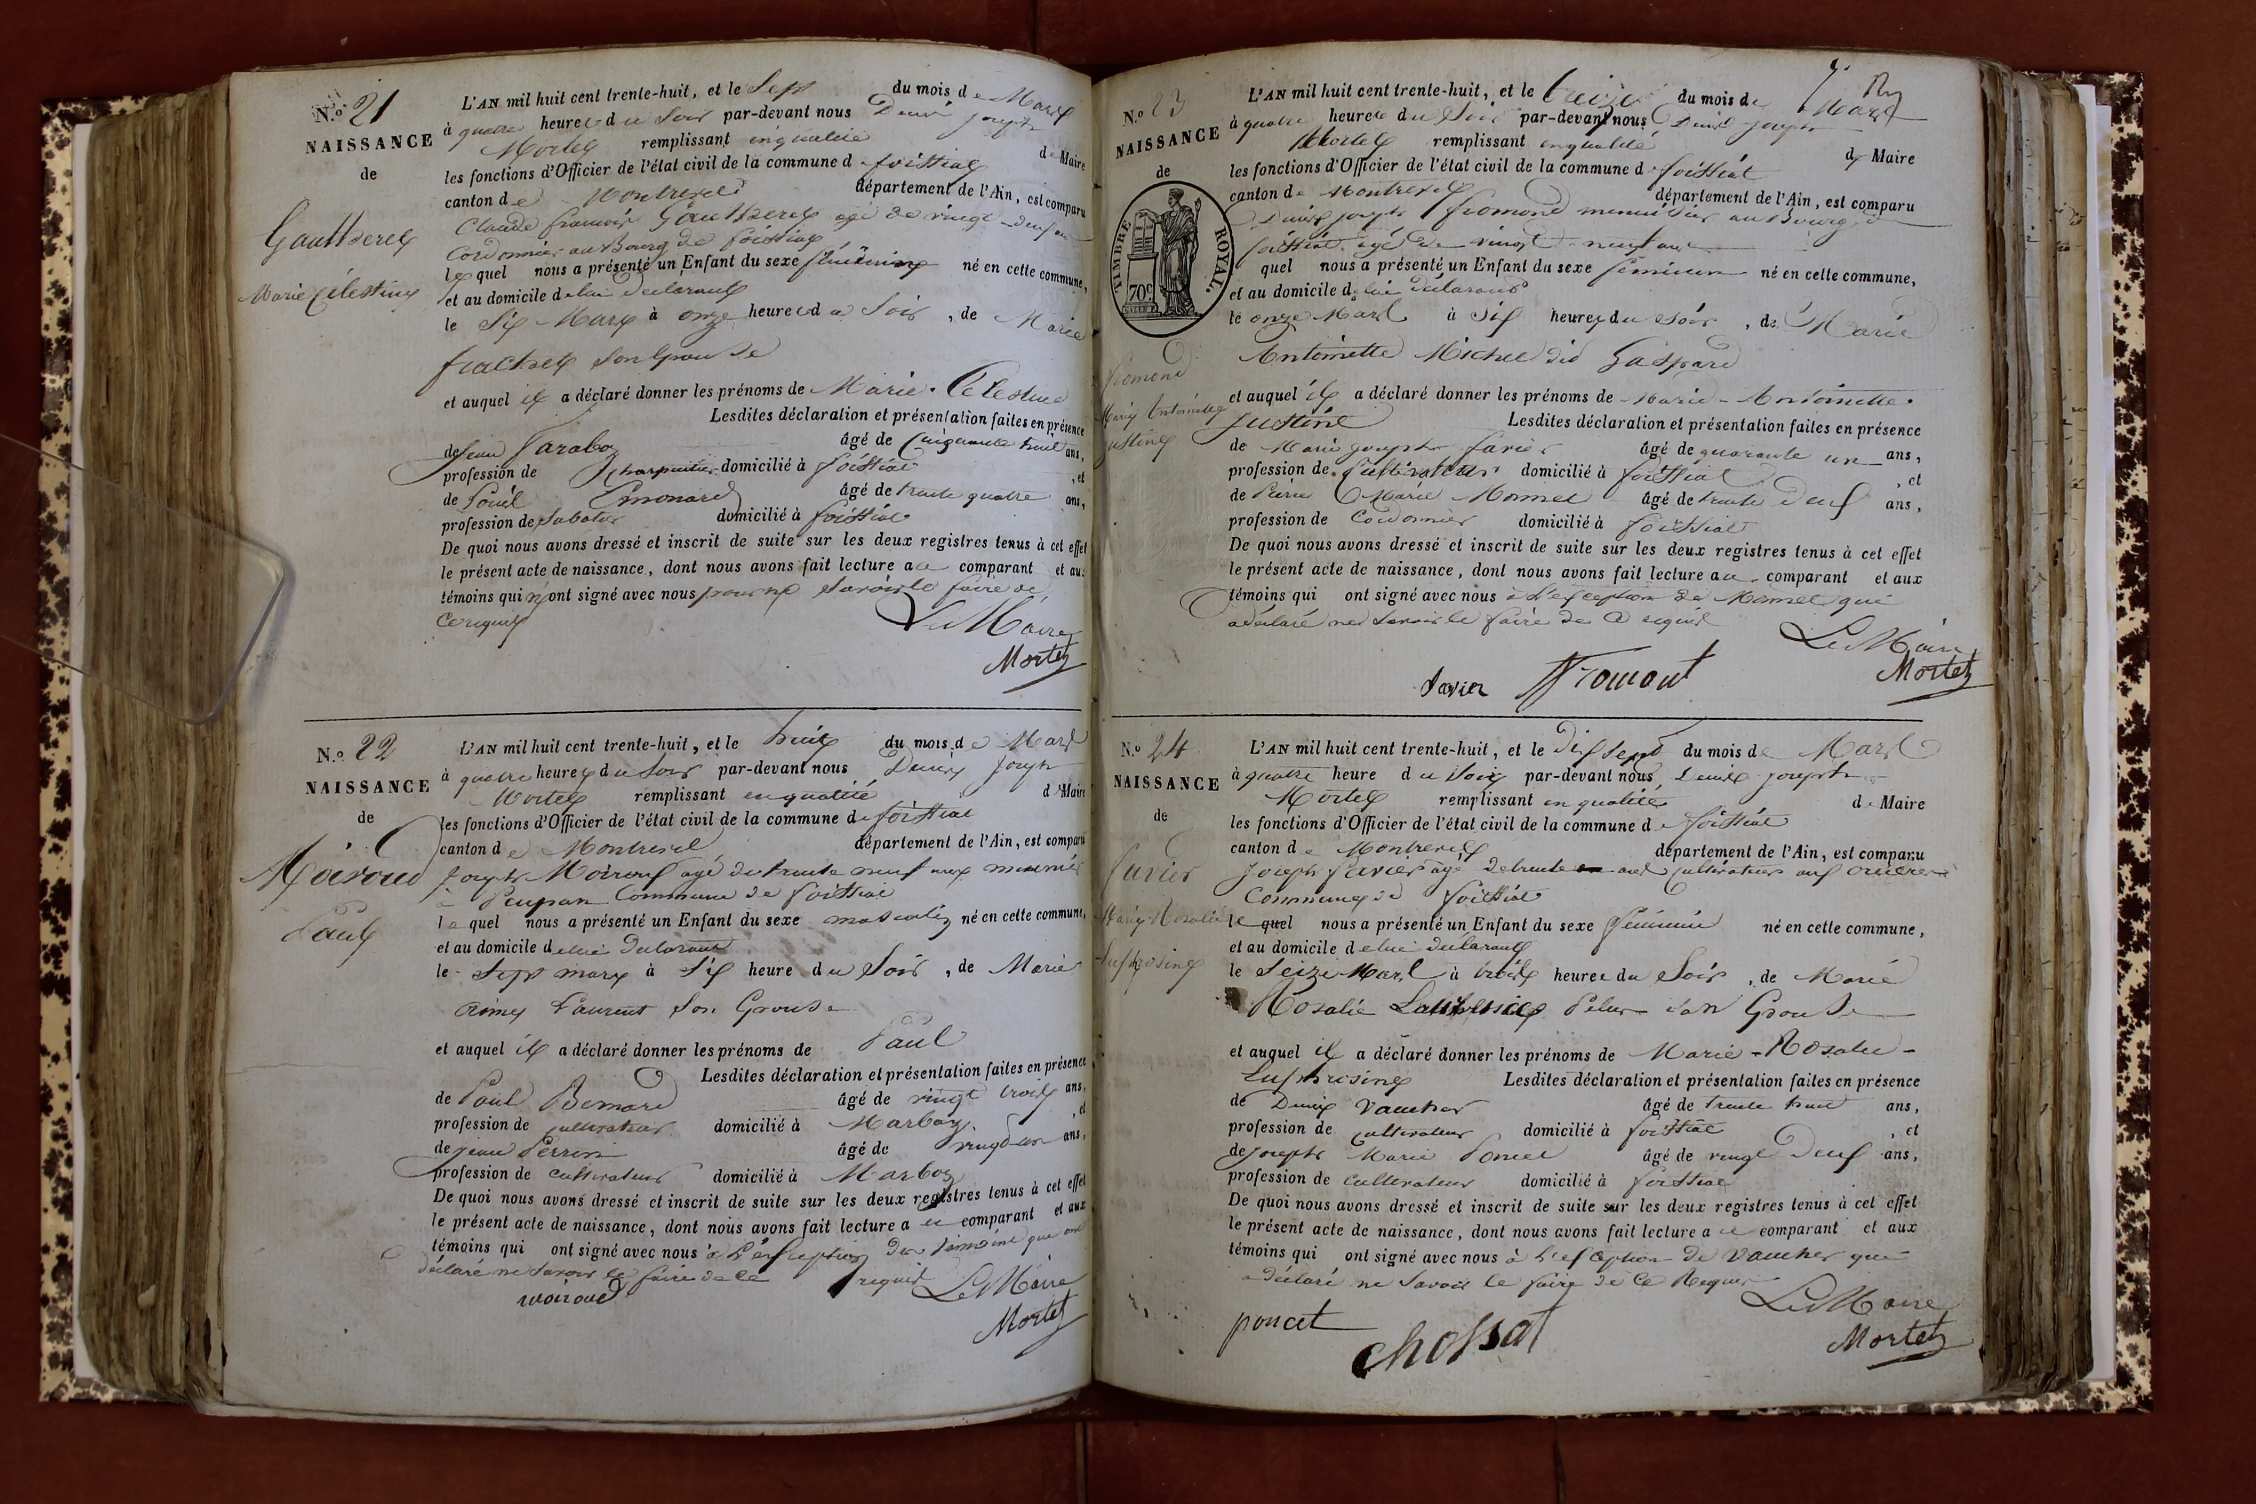 N.o 21
NAISSANCE
de
Gauthier
Marie Célestine
L'AN mil huit cent trente-huit, et le Sept du mois de Mars
à quatre heures du Soir par-devant nous Denis Joseph
Mortel remplissant en qualité de Maire
les fonctions d'Officier de l'état civil de la commune de foissiat
canton de Montrevel département de l'Ain, est comparu
Claude françois agé de vingt-deux ans
Cordonnier au Bourg de foissiat
lequel nous a présenté un Enfant du sexe féminin né en cette commune,
et au domicile de lui déclarant
le Six Mars à onze heures du Soir, de Marie
son épouse
et auquel il a déclaré donner les prénoms de Marie-Célestine
Lesdites déclaration et présentation faites en présence
de Jean âgé de Cinquante huit ans,
profession de charpentier domicilié à foissiat, et
de Louis Emonard âgé de trente quatre ans,
profession de Sabotier domicilié à foissiat
De quoi nous avons dressé et inscrit de suite sur les deux registres tenus à cet effet
le présent acte de naissance, dont nous avons fait lecture au comparant et aux
témoins qui n'ont signé avec nous pour ne savoir le faire de
ce requis
Le Maire
Mortel
N.o 22
NAISSANCE
de
Moiroud
Paul
L'AN mil huit cent trente-huit, et le huit du mois de Mars
à quatre heures du Soir par-devant nous Denis Joseph
Mortel remplissant en qualité de Maire
les fonctions d'Officier de l'état civil de la commune de foissiat
canton de Montrevel département de l'Ain, est comparu
Joseph Moiroud agé de trente neuf ans meunier
à Commune de foissiat
lequel nous a présenté un Enfant du sexe masculin né en cette commune,
et au domicile de lui déclarant
le Sept mars à Six heure du Soir, de Marie
Laurent son épouse
et auquel il a déclaré donner les prénoms de Paul
Lesdites déclaration et présentation faites en présence
de Paul Bernard âgé de vingt trois ans,
profession de cultivateur domicilié à Marboz, et
de jean Perrin âgé de ans,
profession de cultivateur domicilié à Marboz
De quoi nous avons dressé et inscrit de suite sur les deux registres tenus à cet effet
le présent acte de naissance, dont nous avons fait lecture au comparant et aux
témoins qui ont signé avec nous à l'exception des témoins qui ont
déclaré ne savoir le faire de ce requis
Le Maire
moiroud
Mortel
N.o 23
NAISSANCE
de
TIMBRE ROYAL.
70c.
fromond
Marie Antoinette
justine
L'AN mil huit cent trente-huit, et le treize du mois de Mars
à quatre heures du Soir par-devant nous Denis Joseph
Mortel remplissant en qualité de Maire
les fonctions d'Officier de l'état civil de la commune de foissiat
canton de Montrevel département de l'Ain, est comparu
Denis joseph fromond menuisier au Bourg de
foissiat agé de vingt-neuf ans
quel nous a présenté un Enfant du sexe féminin né en cette commune,
et au domicile de lui déclarant
le onze Mars à Six heures du Soir, de Marie
Antoinette Michel dit Gaspard
et auquel il a déclaré donner les prénoms de Marie-Antoinette-
Justine Lesdites déclaration et présentation faites en présence
de Marie joseph favier âgé de quarante un ans,
profession de Cultivateur domicilié à foissiat, et
de Marie Monnet âgé de trente deux ans,
profession de Cordonnier domicilié à foissiat
De quoi nous avons dressé et inscrit de suite sur les deux registres tenus à cet effet
le présent acte de naissance, dont nous avons fait lecture au comparant et aux
témoins qui ont signé avec nous à l'exception de Monnet qui
a déclaré ne savoir le faire de ce requis
Le Maire
favier fromont Mortel
N.o 24
NAISSANCE
de
favier
Marie Rosalie
L'AN mil huit cent trente-huit, et le Dix sept du mois de Mars
à quatre heure du Soir par-devant nous Denis Joseph
Mortel remplissant en qualité de Maire
les fonctions d'Officier de l'état civil de la commune de foissiat
canton de Montrevel département de l'Ain, est comparu
Joseph favier agé de trente ans Cultivateur aux
Commune de foissiat
lequel nous a présenté un Enfant du sexe féminin né en cette commune,
et au domicile de lui déclarant
le Seize Mars à trois heures du Soir, de Marie
Rosalie son épouse
et auquel il a déclaré donner les prénoms de Marie-Rosalie-
Lesdites déclaration et présentation faites en présence
de Denis Vaucher âgé de trente huit ans,
profession de cultivateur domicilié à foissiat, et
de Joseph Marie Poncet âgé de vingt Deux ans,
profession de cultivateur domicilié à foissiat
De quoi nous avons dressé et inscrit de suite sur les deux registres tenus à cet effet
le présent acte de naissance, dont nous avons fait lecture au comparant et aux
témoins qui ont signé avec nous à l'exception de Vaucher qui
a déclaré ne savoir le faire de ce Requis
Le Maire
poncet chossat Mortel